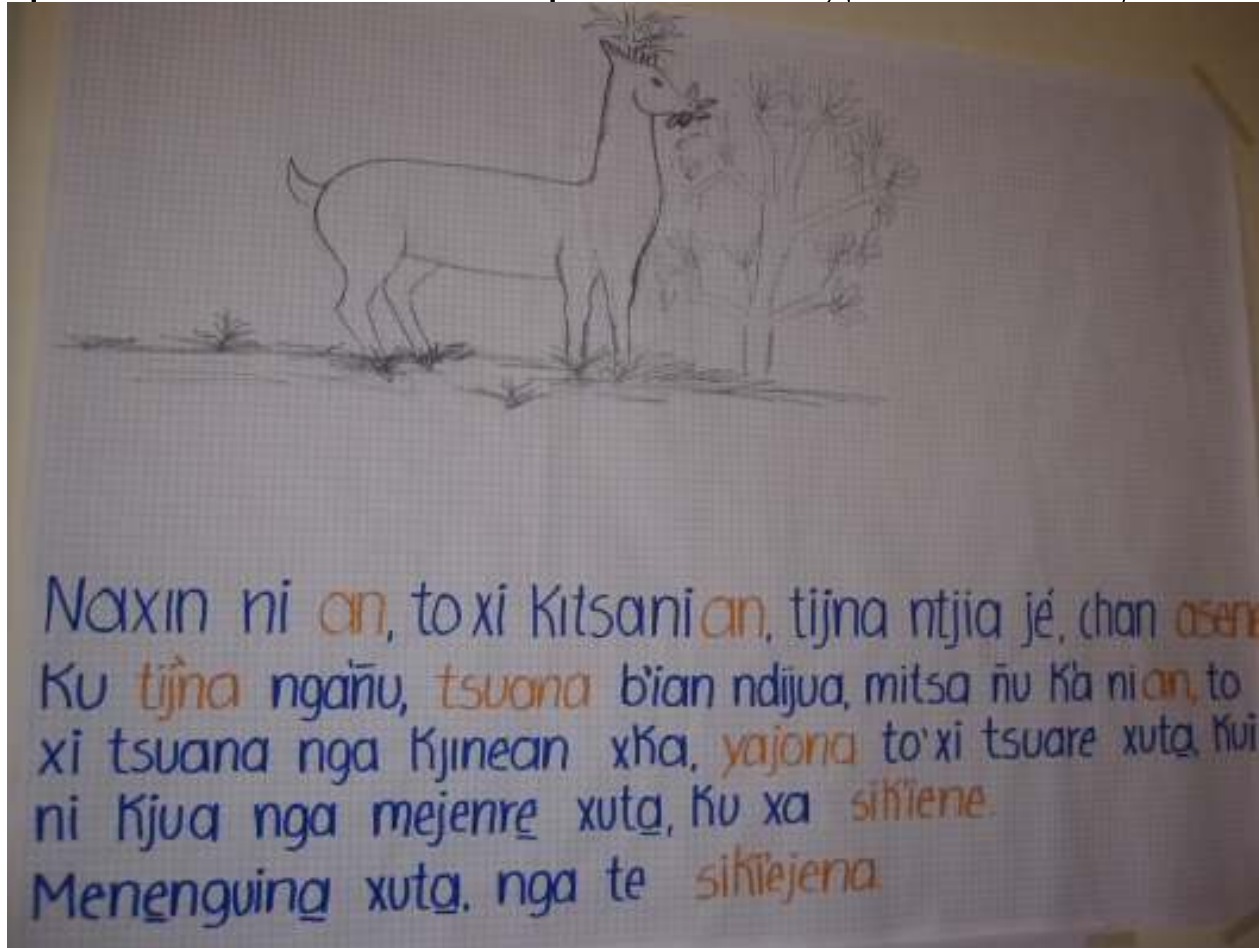 Naxin ni an, to xi Kitsanian, tijna ntjia jé, chan asen
Ku tijña ngañu, tsuana b'ian ndijua, mitsa ñu K'a nian, to
xi tsuana nga Kjinean xKa, yajona to'xi tsuare xuta̱, Kui
ni Kjua nga mejenre̱ xuta̱, Ku xa sik'iene.
Mene̱nguina̱ xuta̱, nga te sik'iejena.